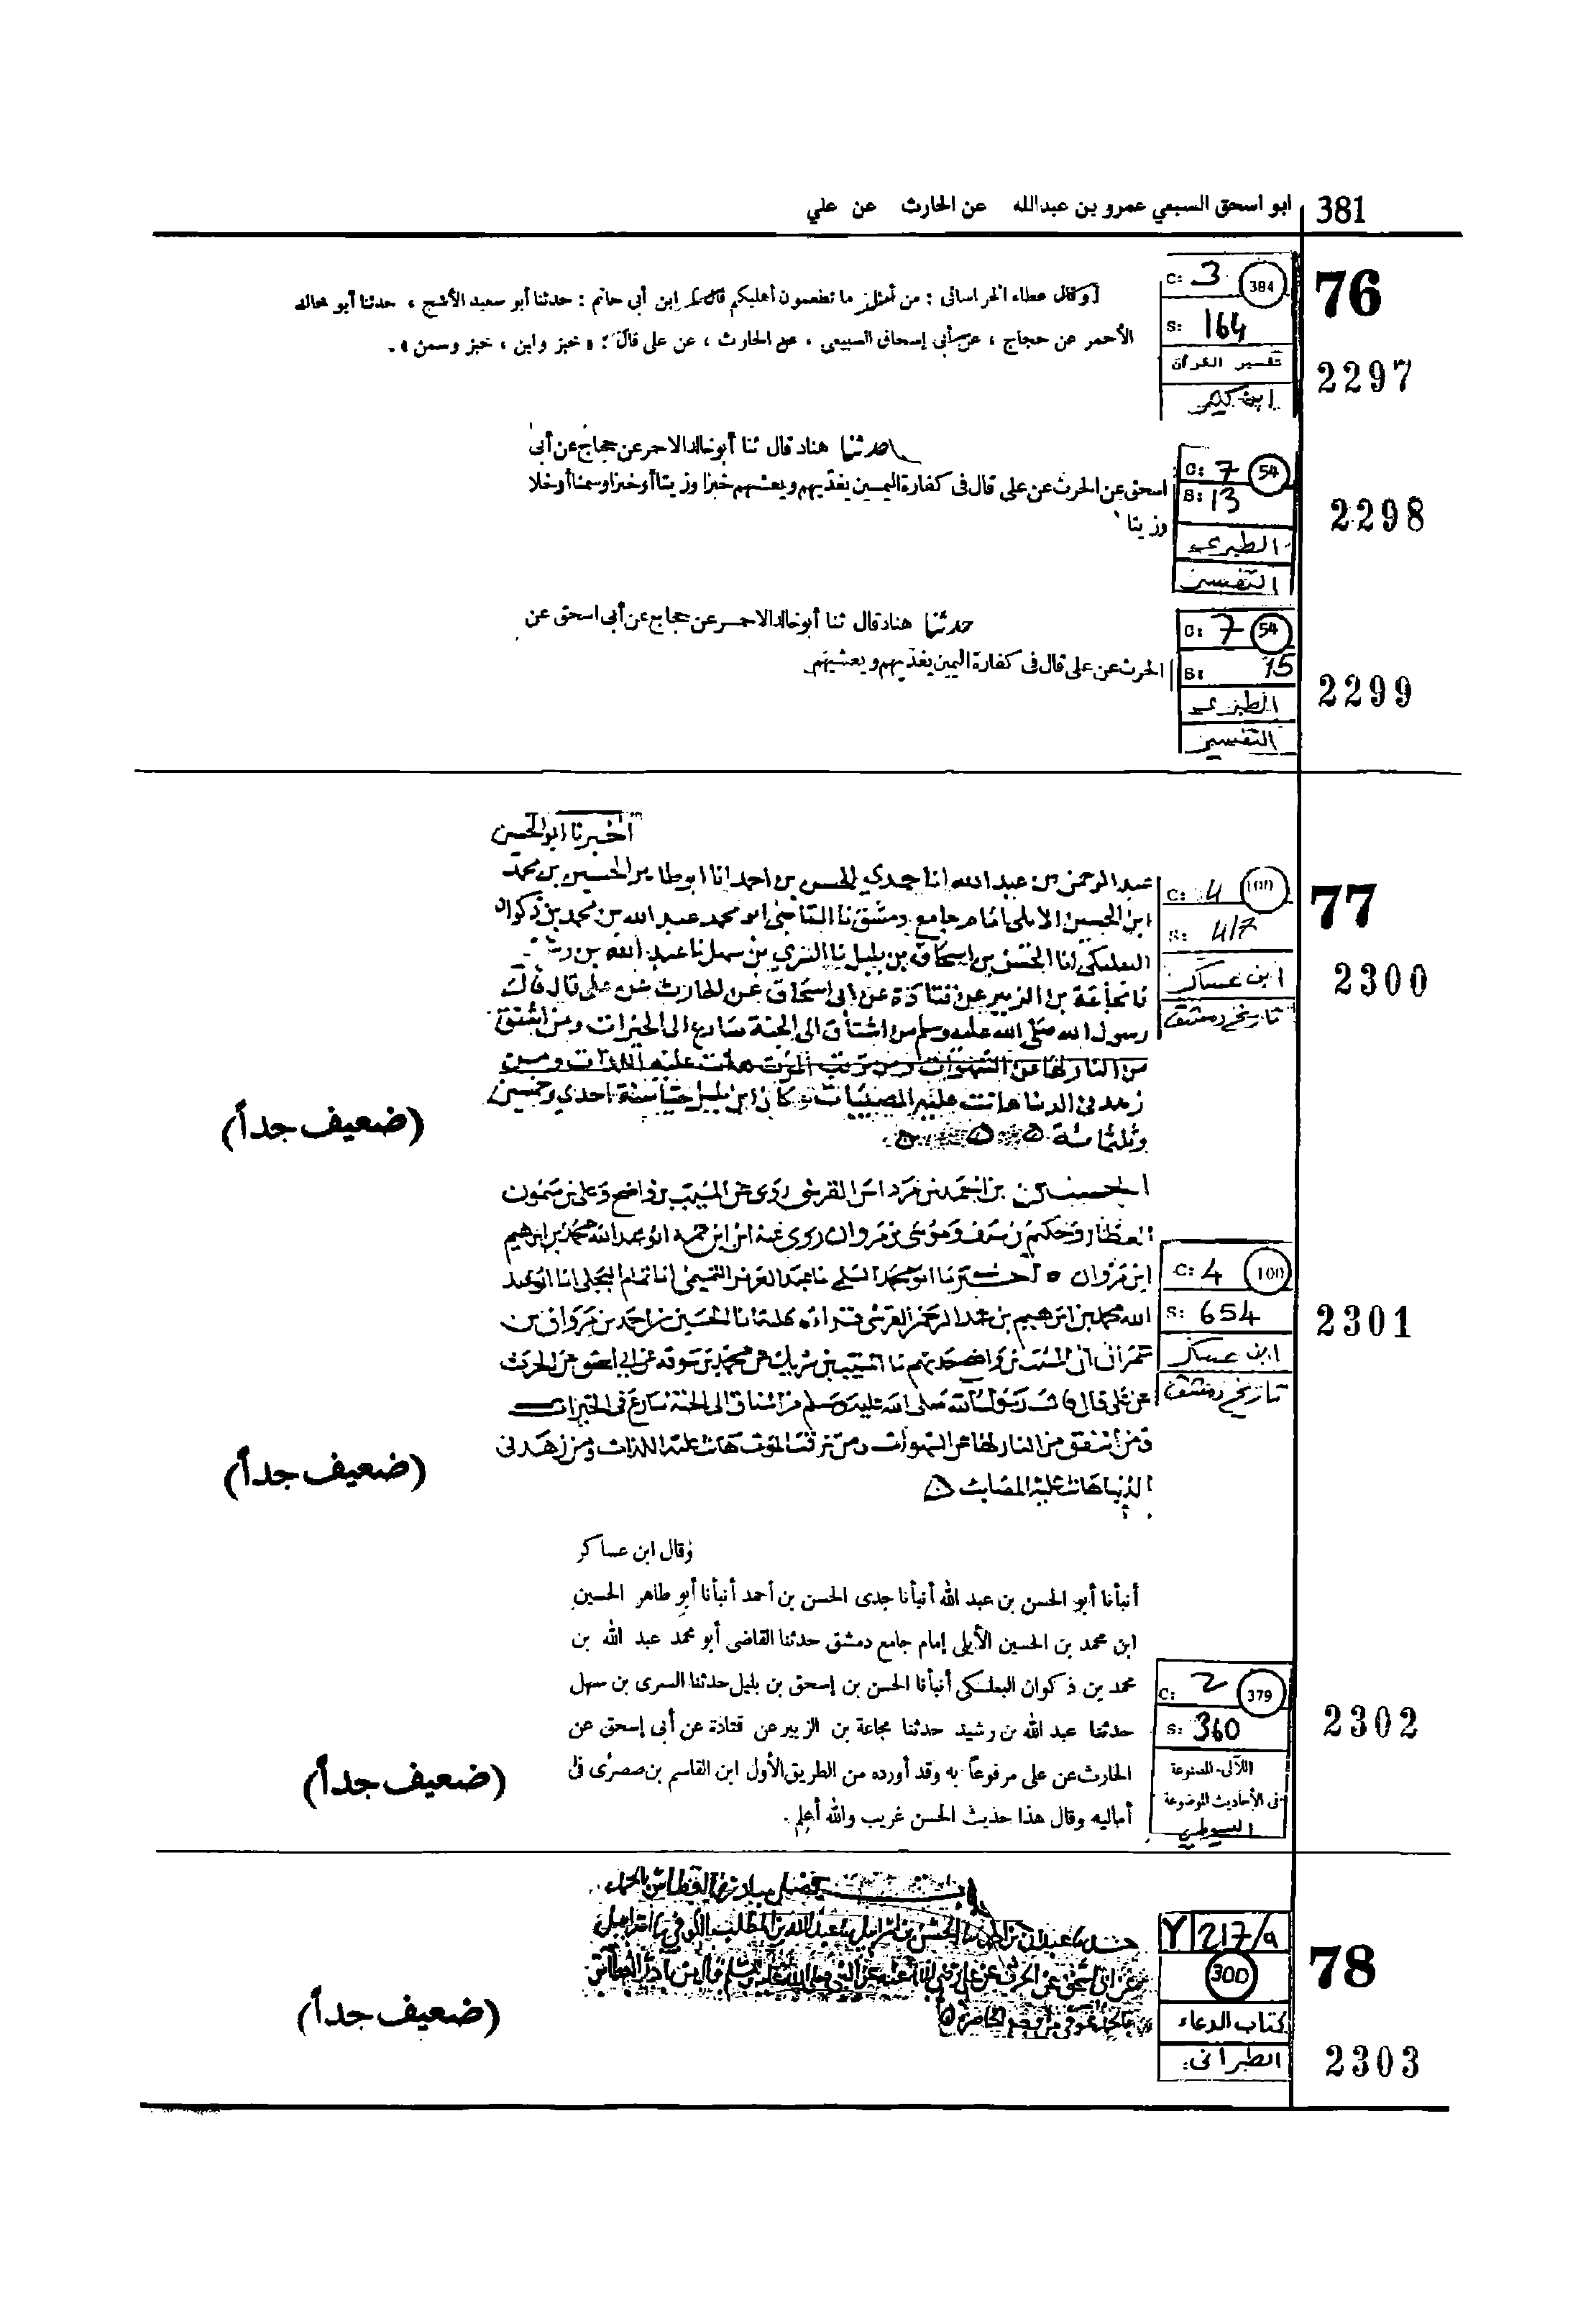 381 ابو اسحق السبعي عمرو بن عبدالله عن الحارث عن علي
76
C: 3 384
S: 164
تفسير القرآن
ابن كثير
2297
[وقال عطاء الخراسانى : من أمثل ما تطعمون أهليكم قال ابن أبى حاتم : حدثنا أبو سعيد الأشج ، حدثنا أبو خالد
الأحمر عن حجاج ، عن أبى إسحاق السبيعى ، عن الحارث ، عن على قال : « خبز ولبن ، خبز وسمن » .
C: 7 54
S: 13
الطبري
التفسير
2298
حدثنا هناد قال ثنا أبو خالد الاحمر عن حجاج عن أبى
اسحق عن الحرث عن على قال فى كفارة اليمين يغذيهم ويعشيهم خبزا وزيتا أو خبزا وسمنا أو خلا
وزيتا
C: 7 54
S: 15
الطبري
التفسير
2299
حدثنا هناد قال ثنا أبو خالد الاحمر عن حجاج عن أبى اسحق عن
الحرث عن على قال فى كفارة اليمين يغذيهم ويعشيهم
77
C: 4 100
S: 417
ابن عساكر
تاريخ دمشق
2300
اخبرنا ابو الحسن
عبد الرحمن بن عبد الله انا جدي الحسن بن احمد انا ابو طاهر الحسين بن محمد
ابن الحسين الابلى امام جامع دمشق نا القاضى ابو محمد عبد الله بن محمد بن ذكوان
البعلبكي انا الحسن بن اسحاق بن بليل نا السري بن سهل نا عبد الله بن رشيد
نا مجاعة بن الزبير عن قتادة عن ابى اسحاق عن الحارث عن على قال قال
رسول الله صلى الله عليه وسلم من اشتاق الى الجنة سارع الى الخيرات ومن اشفق
من النار لها عن الشهوات ومن ترقب الموت هانت عليه اللذات ومن
زهد فى الدنيا هانت عليه المصيبات وكان ابن بليل حيا سنة احدي وخمسين
وثلثمائة
(ضعيف جداً)
C: 4 100
S: 654
ابن عساكر
تاريخ دمشق
2301
الحسين بن احمد بن مروان القرشي روى عن المسيب بن واضح وعلى بن ميمون
العطار وحكيم بن سيف وموسى بن مروان روى عنه ابو عبد الله محمد بن ابرهيم
ابن مروان اخبرنا ابو محمد السلمي نا عبد العزيز التميمي انا تمام البجلي انا ابو عبد
الله محمد بن ابرهيم بن عبد الرحمن القرشي قراءة عليه انا الحسين بن احمد بن مروان بن
ان المسيب بن واضح حدثهم نا المسيب بن شريك عن محمد بن سوقه عن ابي اسحق عن الحرث
عن على قال قال رسول الله صلى الله عليه وسلم من اشتاق الى الجنة سارع فى الخيرات
ومن اشفق من النار لها عن الشهوات ومن ترقب الموت هانت عليه اللذات ومن زهد فى
الدنيا هانت عليه المصايب
(ضعيف جداً)
C: 2 379
S: 360
اللآلى المصنوعة
فى الأحاديث الموضوعة
السيوطي
2302
وقال ابن عساكر
أنبأنا أبو الحسن بن عبد الله أنبأنا جدى الحسن بن أحمد أنبأنا أبو طاهر الحسين
ابن محمد بن الحسين الأبلى إمام جامع دمشق حدثنا القاضى أبو محمد عبد الله بن
محمد بن ذكوان البعلبكى أنبأنا الحسن بن إسحق بن بليل حدثنا السرى بن سهل
حدثنا عبد الله بن رشيد حدثنا مجاعة بن الزبير عن قتادة عن أبى إسحق عن
الحارث عن على مرفوعاً به وقد أورده من الطريق الأول ابن القاسم بن صصرى فى
أماليه وقال هذا حديث الحسن غريب والله أعلم .
(ضعيف جداً)
78
Y 217/a
300
كتاب الدعاء
الطبرانى
2303
(ضعيف جداً)